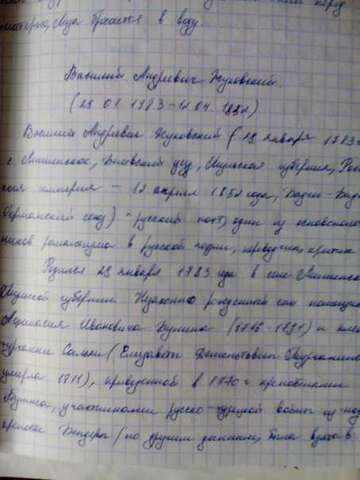 матери, Лиза бросается в воду.
Василий Андреевич Жуковский.
(29.01.1783-12.04.1852)
Василий Андреевич Жуковский (29 января 1783
с. Мишенское, Белёвский уезд, Тульская губерния, Рос
ская империя - 12 апреля 1852 года, Баден-Бад
Германский союз) - русский поэт, один из основополо
ников романтизма в русской поэзии, переводчик, критик
Родился 29 января 1783 года в селе Мишенско
Тульской губернии. Незаконно рождённый сын помещика
Афанасия Ивановича Бунина (1716-1791) и плен
турчанки Сальхи (Елизавета Дементьевна Турчанинова
умерла 1811), привезённой в 1770 г. крепостными
Бунина, участниками русско-турецкой войны из под
крепости Бендеры (по другим данным, была взята в